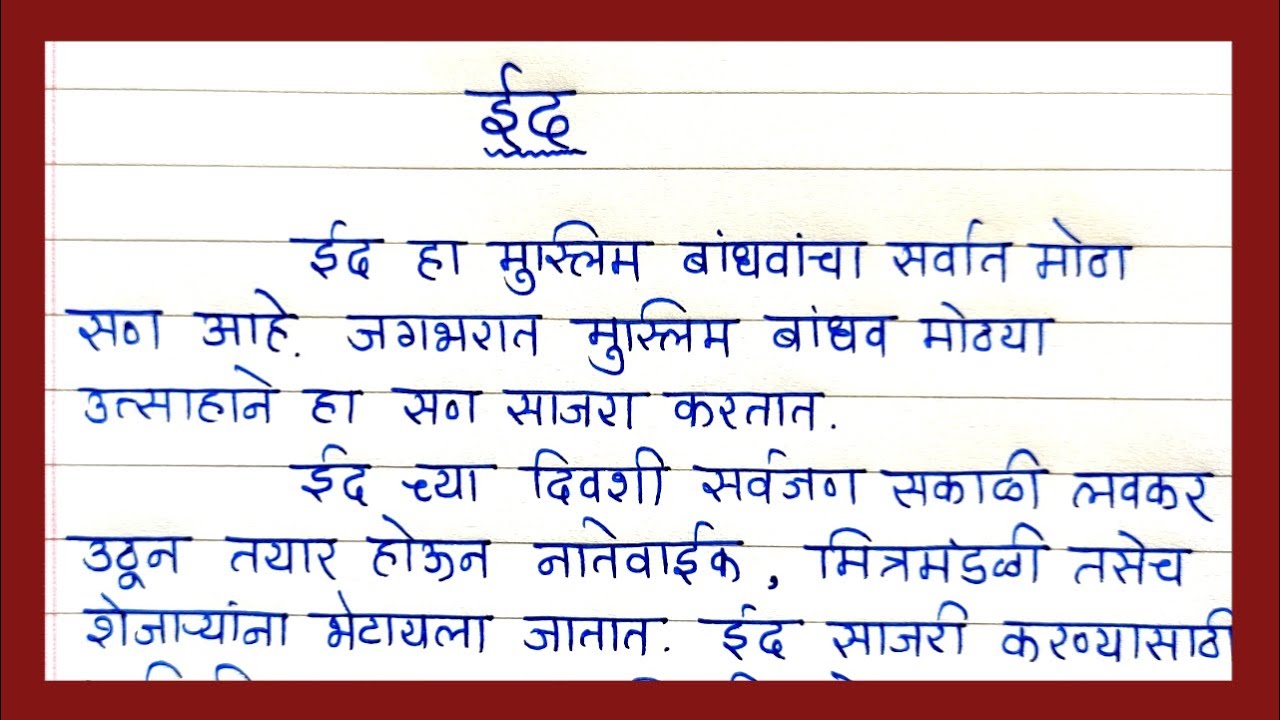 ईद
ईद हा मुस्लिम बांधवांचा सर्वात मोठा
सण आहे. जगभरात मुस्लिम बांधव मोठया
उत्साहाने हा सण साजरा करतात.
ईद च्या दिवशी सर्वजण सकाळी लवकर
उठून तयार होऊन नातेवाईक, मित्रमंडळी तसेच
शेजाऱ्यांना भेटायला जातात. ईद साजरी करण्यासाठी